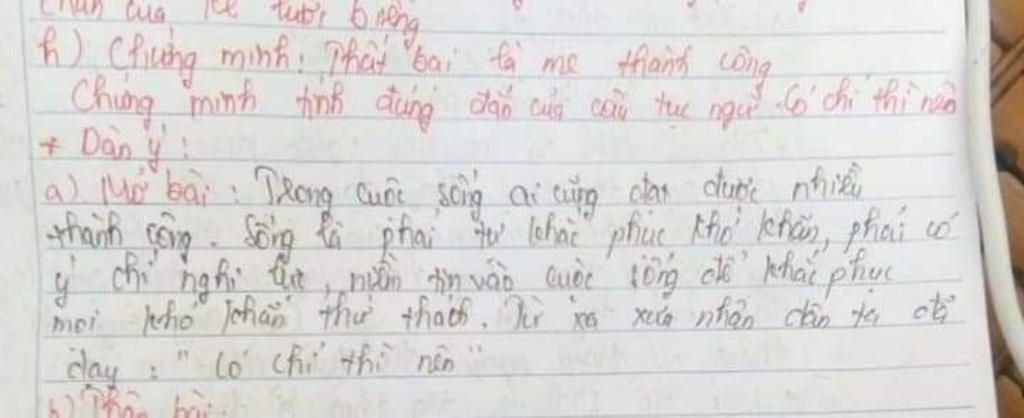 của kẻ lười biếng
h) Chứng minh: Thất bại là mẹ thành công
Chứng minh tính đúng đắn của câu tục ngữ. Có chí thì nên
* Dàn ý:
a) Mở bài: Trong cuộc sống ai cũng đạt được nhiều
thành công. Sống là phải tự khắc phục khó khăn, phải có
ý chí nghị lực, niềm tin vào cuộc sống để khắc phục
mọi khó khăn thử thách. Từ xa xưa nhân dân ta đã
dạy: "Có chí thì nên"
b) Thân bài: